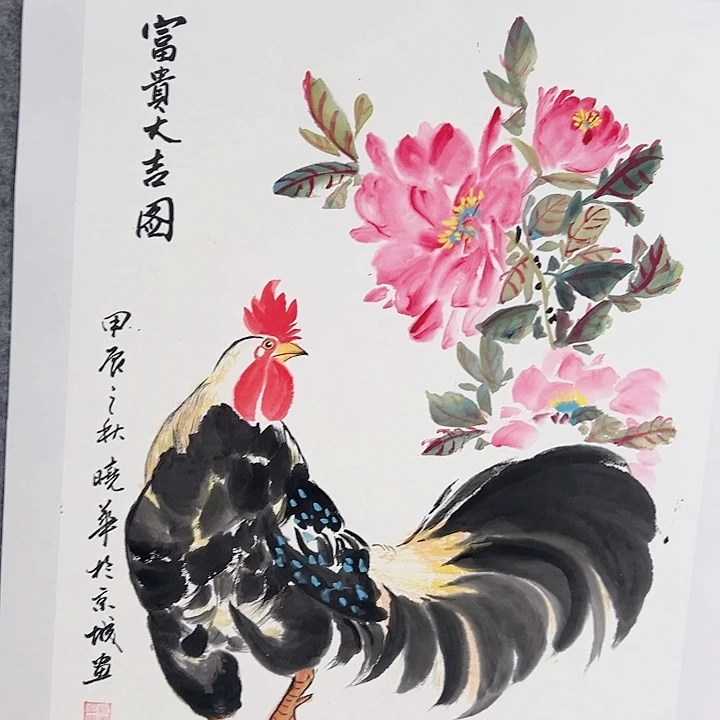 富貴大吉图
甲辰之秋曉華於京城畫